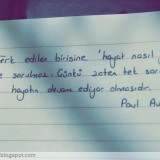 erk edilen birisine 'hayat nasıl
sorulmaz. Çünkü zaten tek sor
hayatın devam ediyor olmasıdır.
Paul Au
blogspot.com